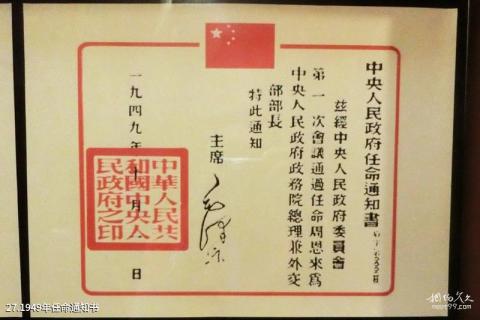 中央人民政府任命通知書
茲經中央人民政府委員會
第一次會議通過任命周恩來爲
中央人民政府政務院總理兼外交
部部長
特此通知
主席
毛澤東
一九四九年十月一日
中華人民共
和國中央人
民政府之印
27.1949年任命通知书